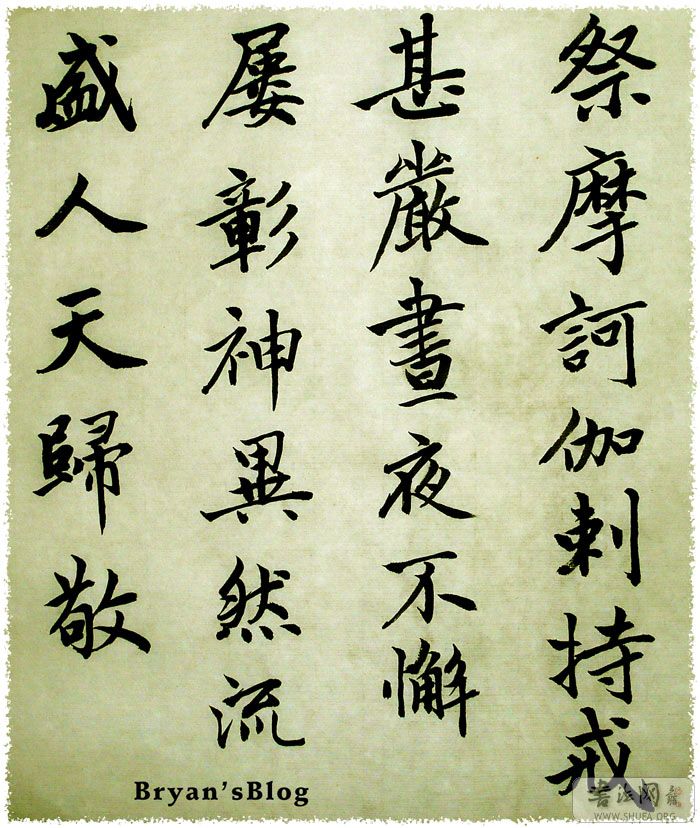 祭摩訶伽剌持戒
甚嚴晝夜不懈
屢彰神異然流
盛人天歸敬
Bryan'sBlog
書法网
WWW.SHUFA.ORG